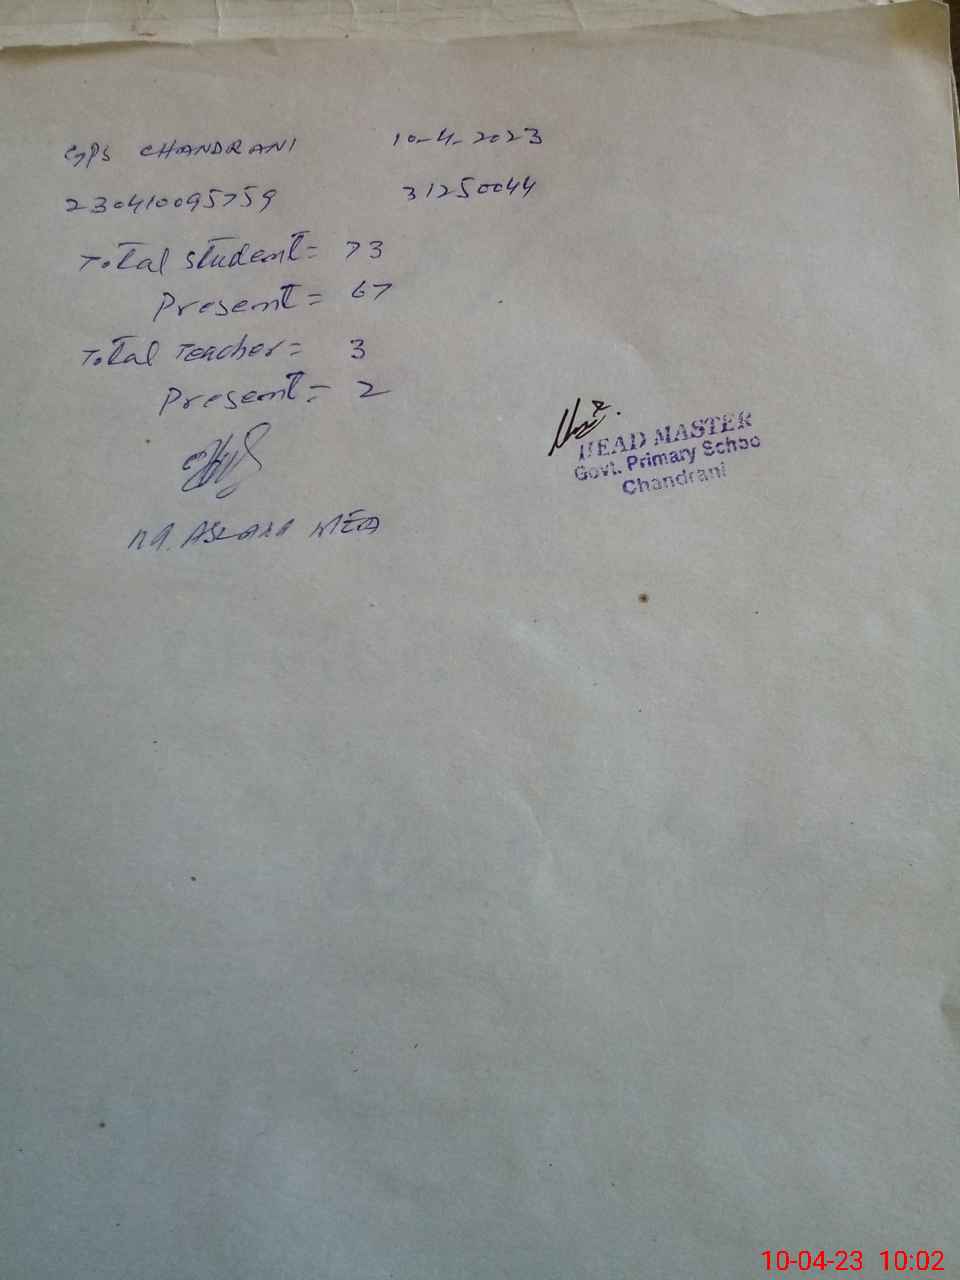 GPS CHANDRANI 10-4-2023
230410095759 31250044
Total student = 73
Present = 67
Total Teacher = 3
Present = 2
HEAD MASTER
Govt. Primary Schoo
Chandrani
10-04-23 10:02